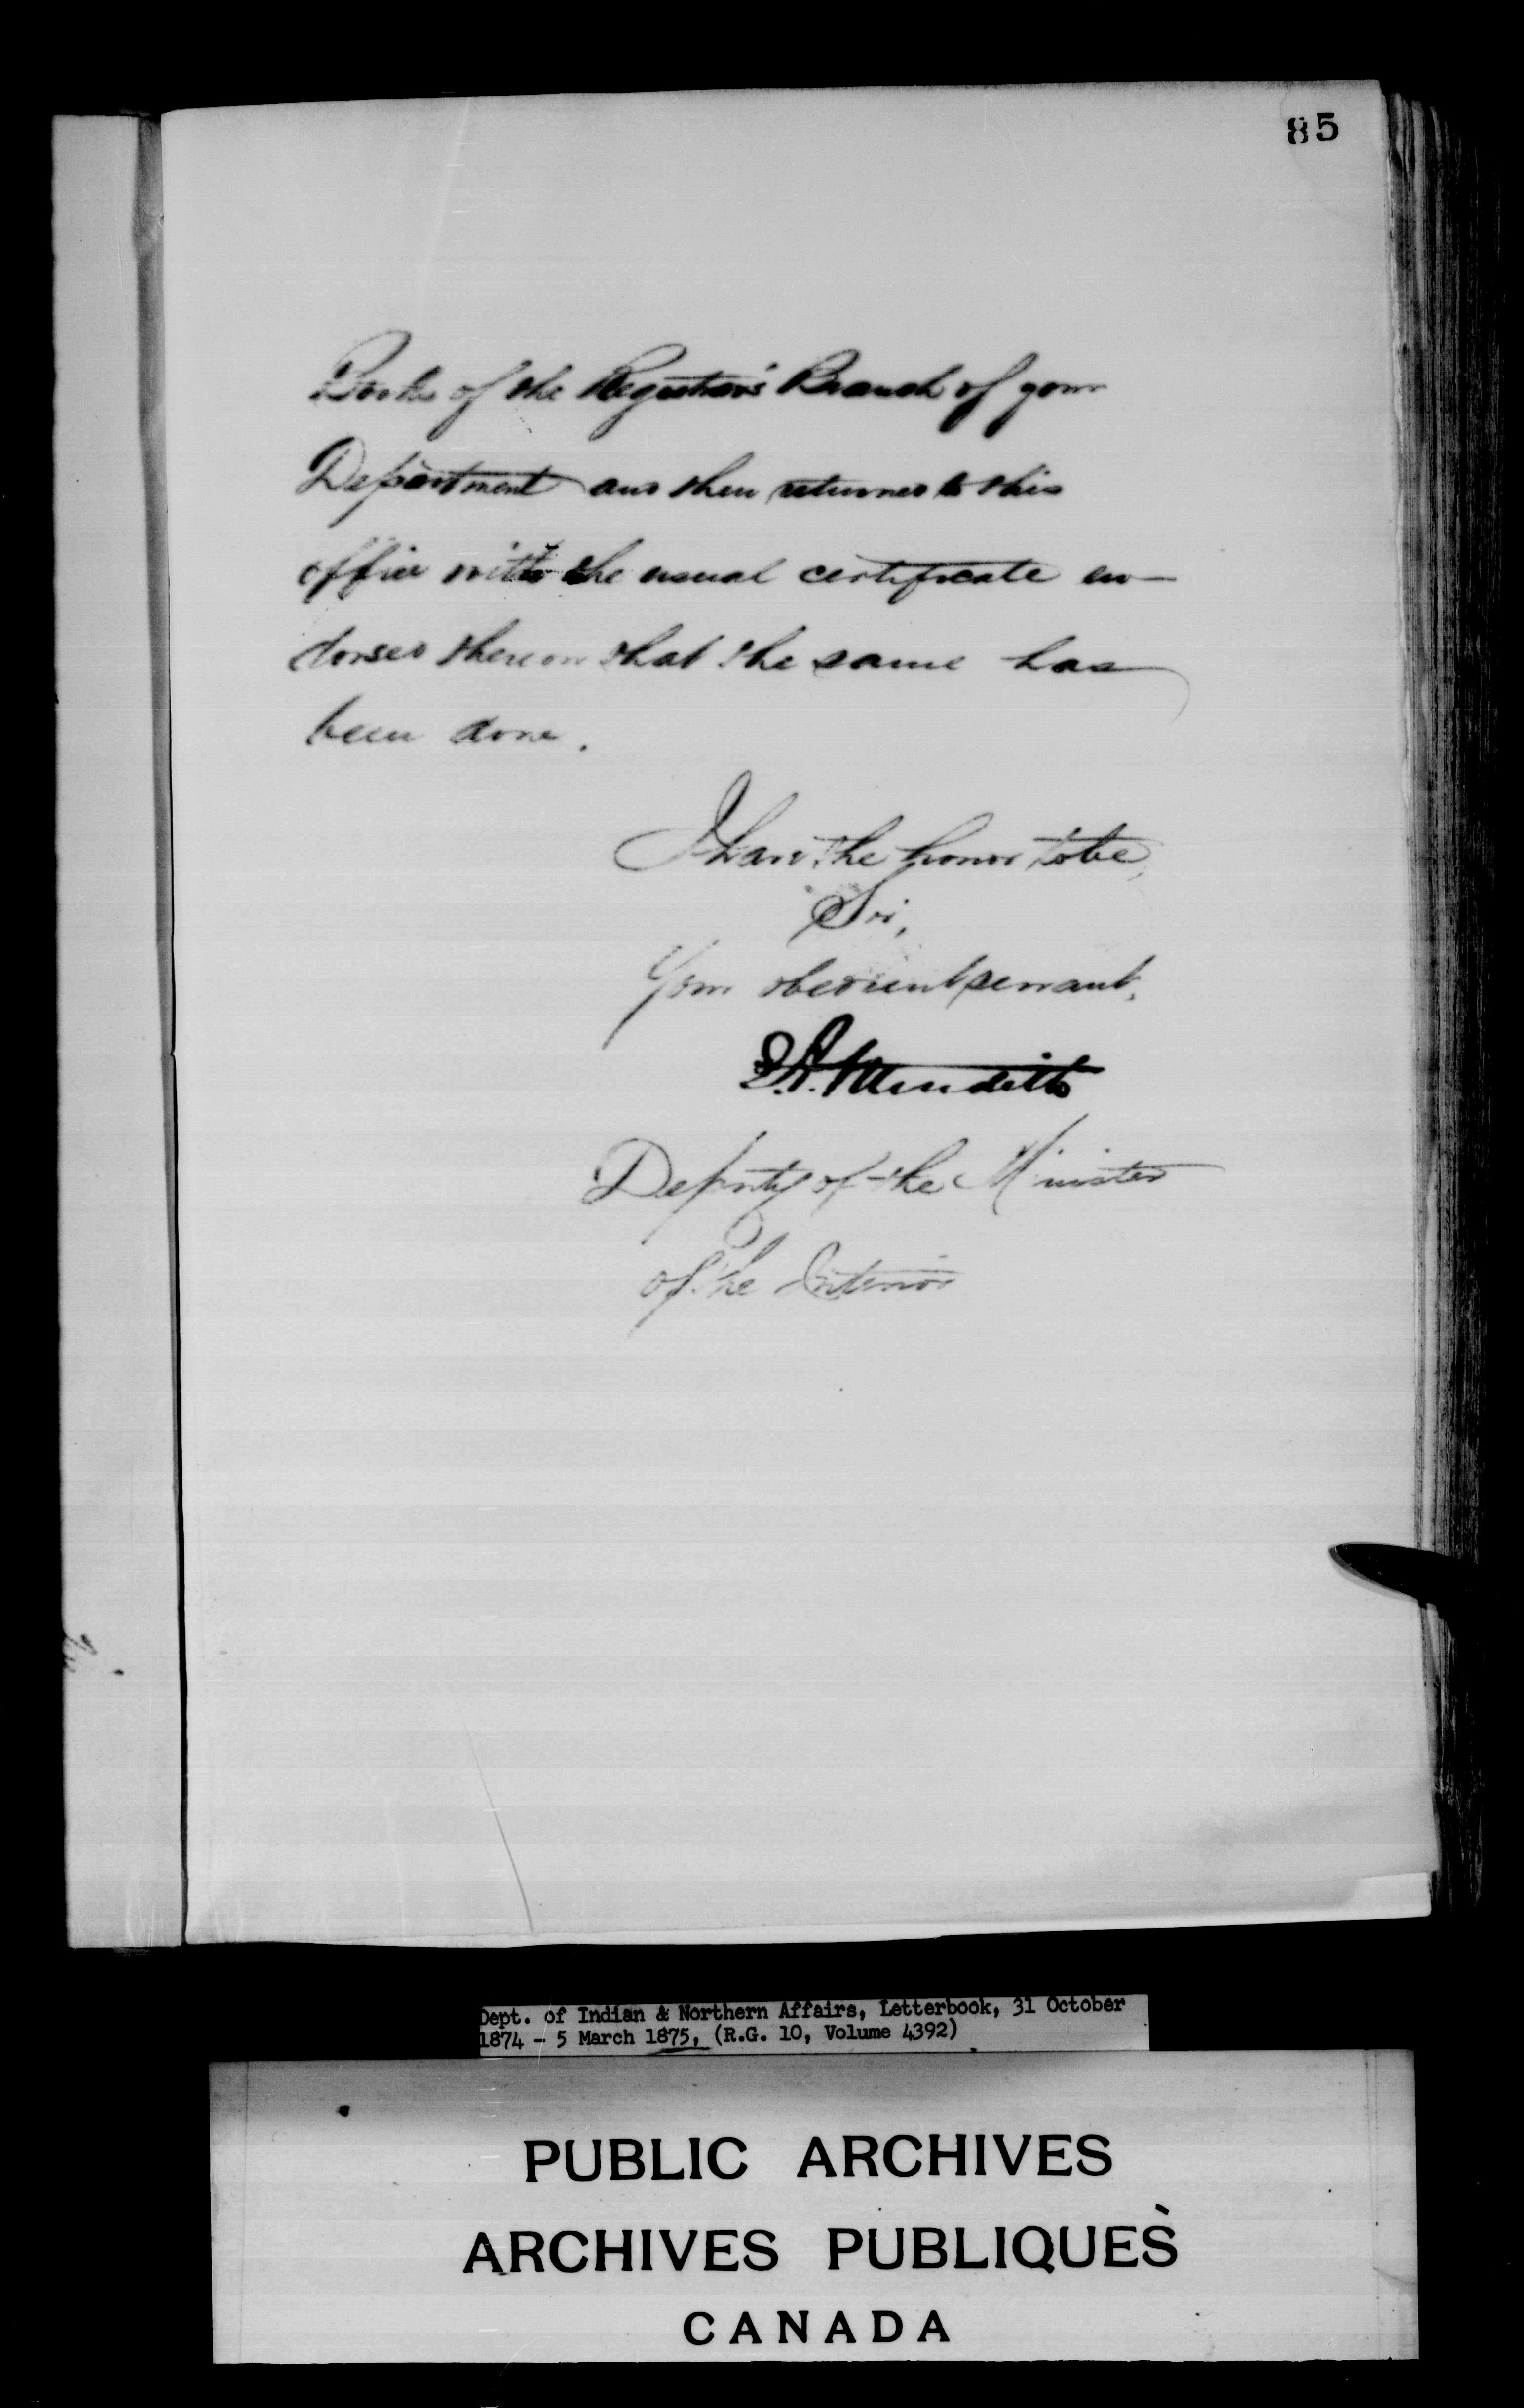 85
Books of the Registrar's Branch of your
Department and then returned to this
office with the usual certificate en-
dorsed thereon that the same has
been done.
I have the honor to be,
Sir,
Your obedient servant,
E.A. Meredith
Deputy of the Minister
of the Interior
Dept. of Indian & Northern Affairs, Letterbook, 31 October
1874 - 5 March 1875, (R.G. 10, Volume 4392)
PUBLIC ARCHIVES
ARCHIVES PUBLIQUES
CANADA